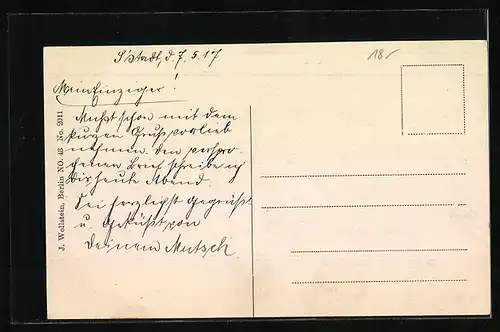 S'stadt, d. 7.5.17
18.-
Mein Einziger!
Mußt schon mit dem
kurzen Gruß vorlieb
nehmen. Den verspro-
chenen Brief schreibe ich
Dir heute Abend.
Sei herzlichst gegrüßt
u. geküßt von
Deinem Mutsch
J. Wollstein, Berlin NO. 43 No. 2011